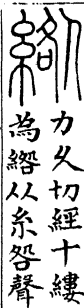 綹
力久切經十縷
為綹从糸咎聲